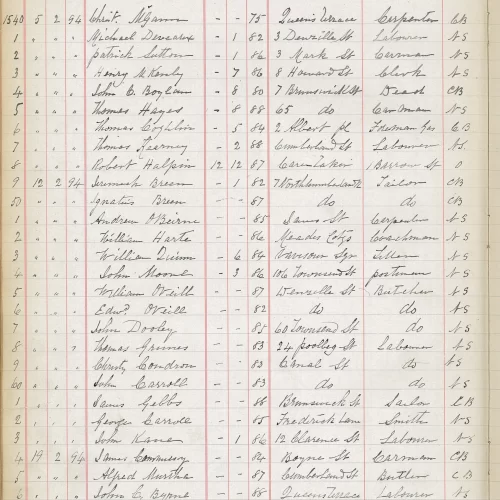 1540 5 2 94 Christ. McGann - - 75 Queens Terrace Carpenter CB
1 " " " Michael Deveaux - 1 82 3 Denzille St Labourer NS
2 " " " Patrick Sutton - 1 86 3 Mark St Carman NS
3 " " " Henry - 7 86 8 Howard St Clerk NS
4 " " " John C. Boylan - 8 80 7 Brunswick St Dead CB
5 " " " Thomas Hayes - 8 88 65 do Car Man NS
6 " " " Thomas Coghlin - 5 84 2 Albert pl Foreman Gas CB
7 " " " Thomas Kearney - 2 88 Cumberland St Labourer NS.
8 " " " Robert Halpin 12 12 87 Care Taker 1 Barrow St O
9 12 2 94 Jeremiah Breen - 1 82 7 Northumberland Tailor CB
50 " " " Ignatius Breen - - 87 do do CB
1 " " " Andrew O'Beirne - - 85 James St Carpenter NS
2 " " " William Harte - - 86 Meades Cotgs Coachman NS
3 " " " William Quinn - 6 84 NS
4 " " " John Mooney - 3 86 106 Townsend St postman NS
5 " " " William O'Neill - - 87 Denzille St Butcher NS
6 " " " Edwd. O'Neill - - 82 do do NS
7 " " " John Dooley - - 85 60 Townsend St do NS
8 " " " Thomas Grimes - - 83 24 Poolbeg St Labourer NS
9 " " " Christy Condron - - 83 Canal St do NS
60 " " " John Carroll - - 83 do do NS
1 " " " James Gibbs - - 86 Brunswick St Sailor CB
2 " " " George Carroll - - 85 Frederick Lane Smith NS
3 " " " John Kane - 1 86 12 Clarence St Labourer NS
4 19 2 94 James - - 84 Boyne St Carman CB
5 " " " Alfred Murtha - - 87 Cumberland St Butler CB
6 " " " John C. Byrne - - 88 Queens Terrace Labourer NS